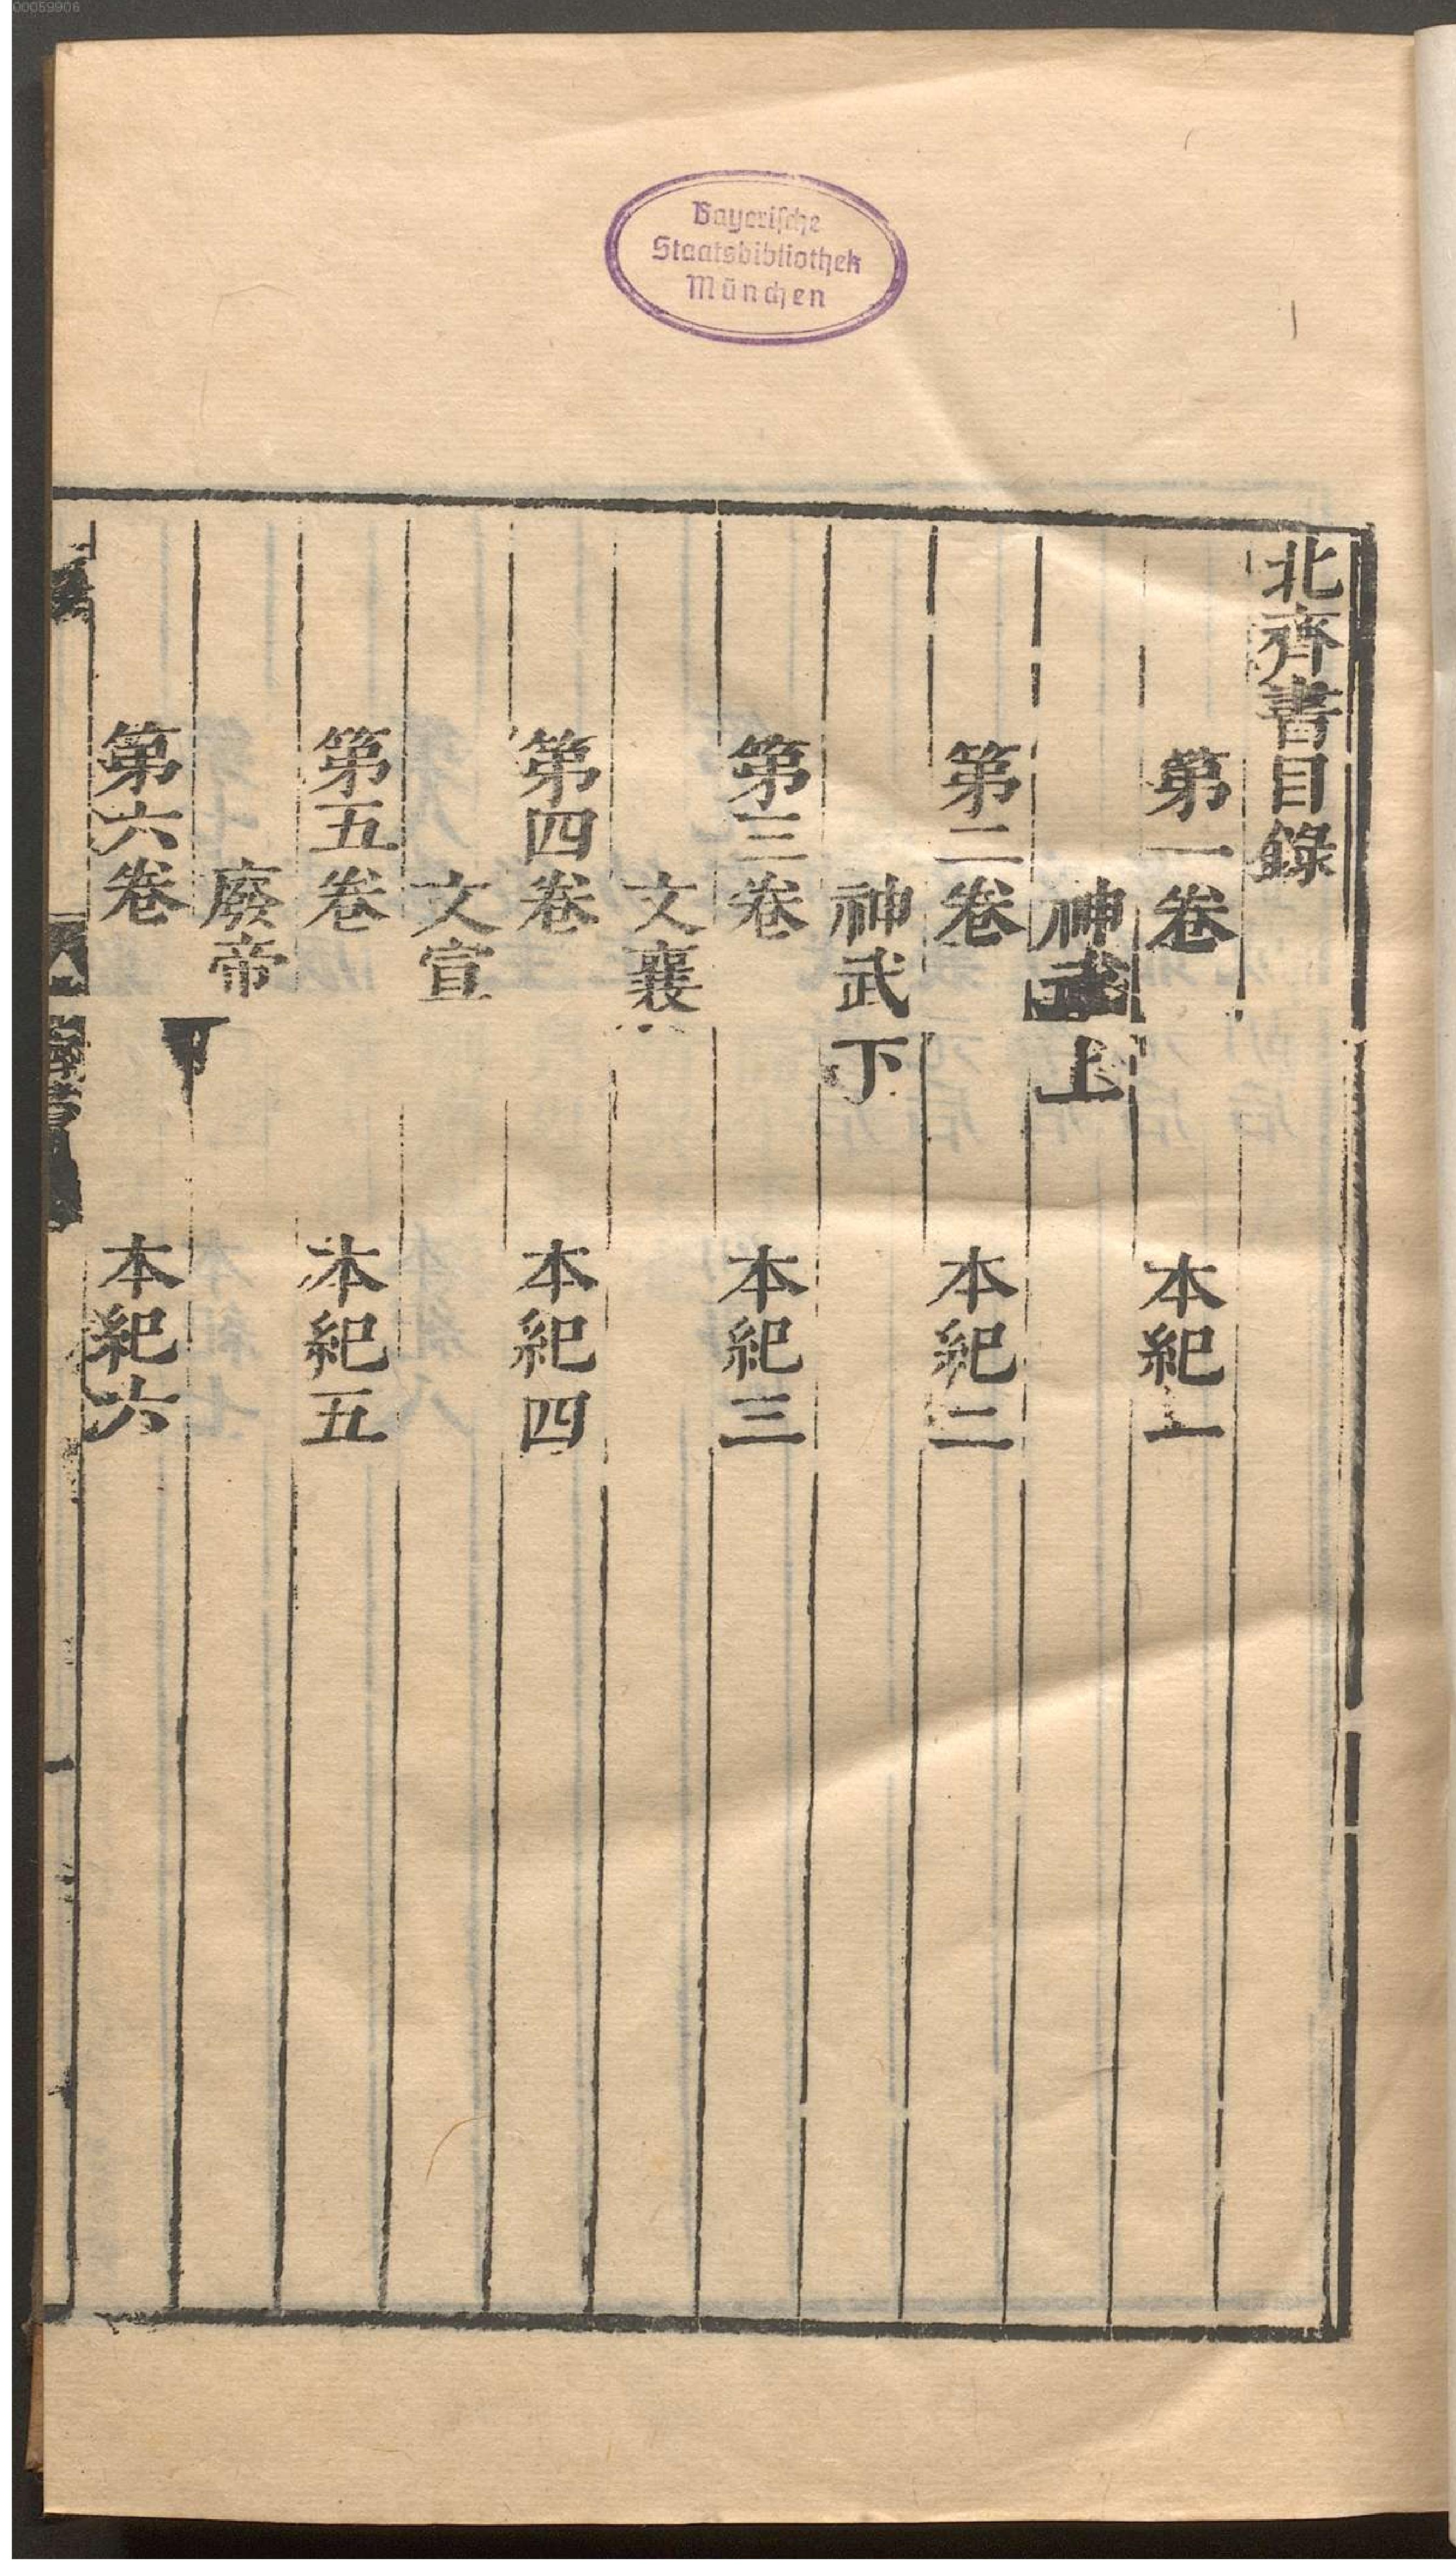 00059906
Bayerische
Staatsbibliothek
München
北齊書目錄
第一卷 本紀一
神武上
第二卷 本紀二
神武下
第三卷 本紀三
文襄
第四卷 本紀四
文宣
第五卷 本紀五
廢帝
第六卷 本紀六